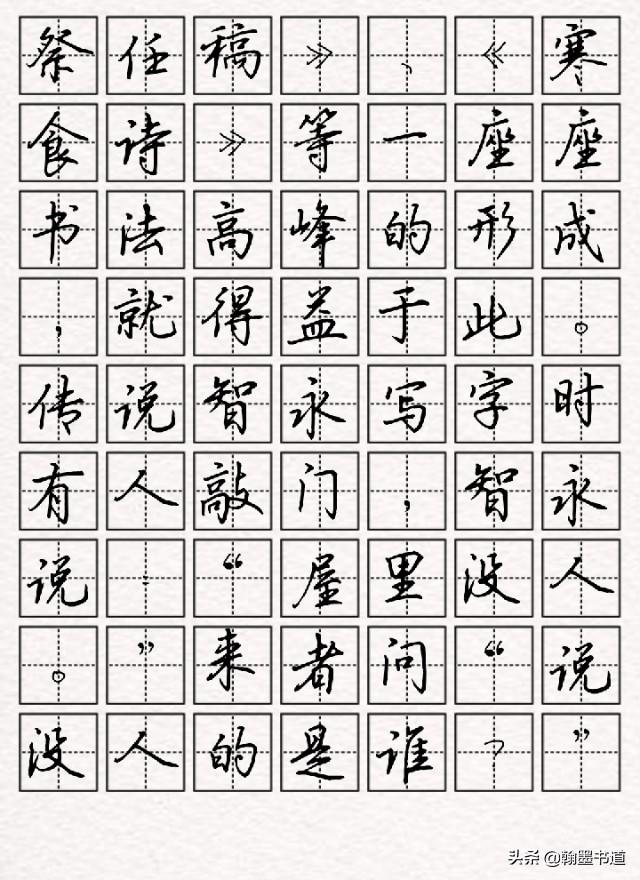 祭任稿》、《寒
食诗》等一座座
书法高峰的形成
，就得益于此。
传说智永写字时
有人敲门，智永
说：“屋里没人
。”来者问“说
没人的是谁？”
头条 @翰墨书道